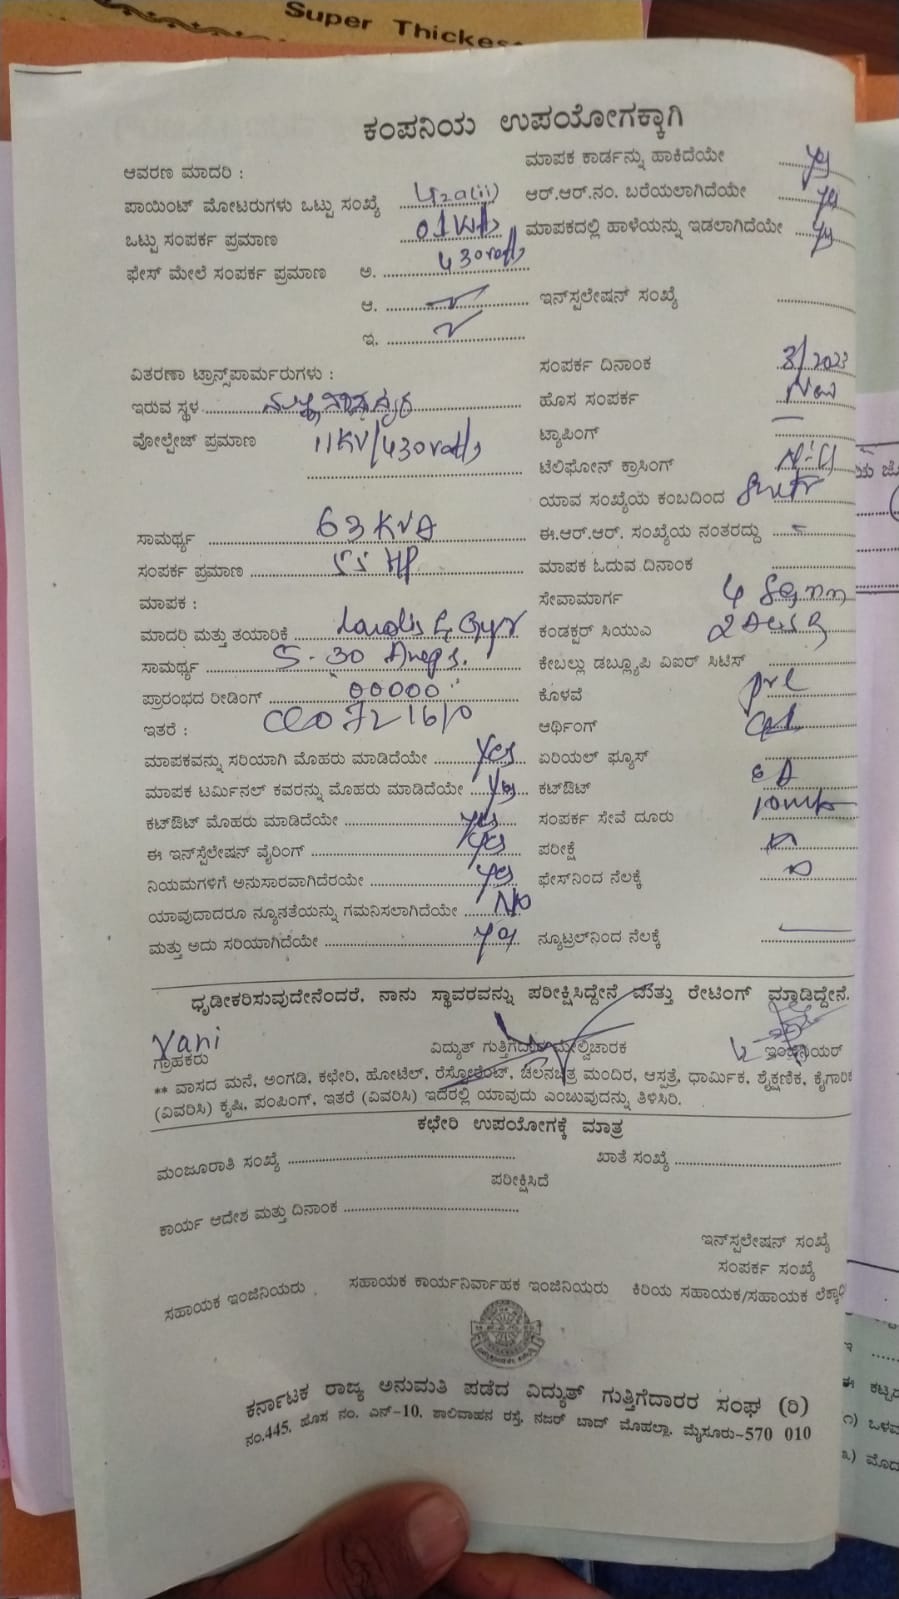 Super Thickes
ಕಂಪನಿಯ ಉಪಯೋಗಕ್ಕಾಗಿ
ಆವರಣ ಮಾದರಿ :
ಮಾಪಕ ಕಾರ್ಡನ್ನು ಹಾಕಿದೆಯೇ yes
ಪಾಯಿಂಟ್ ಮೋಟರುಗಳು ಒಟ್ಟು ಸಂಖ್ಯೆ
ಆರ್.ಆರ್.ನಂ. ಬರೆಯಲಾಗಿದೆಯೇ yes
ಒಟ್ಟು ಸಂಪರ್ಕ ಪ್ರಮಾಣ
ಮಾಪಕದಲ್ಲಿ ಹಾಳೆಯನ್ನು ಇಡಲಾಗಿದೆಯೇ yes
ಫೇಸ್ ಮೇಲೆ ಸಂಪರ್ಕ ಪ್ರಮಾಣ ಅ. 430volts
ಆ.
ಇನ್‌ಸ್ಪಲೇಷನ್ ಸಂಖ್ಯೆ
ಇ.
ವಿತರಣಾ ಟ್ರಾನ್ಸ್‌ಪಾರ್ಮರುಗಳು :
ಸಂಪರ್ಕ ದಿನಾಂಕ 3/2023
ಇರುವ ಸ್ಥಳ
ಹೊಸ ಸಂಪರ್ಕ New
ವೋಲ್ಟೇಜ್ ಪ್ರಮಾಣ 11KV/430volts
ಟ್ಯಾಪಿಂಗ್ —
ಟೆಲಿಫೋನ್ ಕ್ರಾಸಿಂಗ್
ಯಾವ ಸಂಖ್ಯೆಯ ಕಂಬದಿಂದ
ಸಾಮರ್ಥ್ಯ 63 KVA
ಈ.ಆರ್.ಆರ್. ಸಂಖ್ಯೆಯ ನಂತರದ್ದು
ಸಂಪರ್ಕ ಪ್ರಮಾಣ 55 HP
ಮಾಪಕ ಓದುವ ದಿನಾಂಕ
ಮಾಪಕ :
ಸೇವಾಮಾರ್ಗ 4 Sq mm
ಮಾದರಿ ಮತ್ತು ತಯಾರಿಕೆ Landis & Gyr
ಕಂಡಕ್ಟರ್ ಸಿಯುಎ
ಸಾಮರ್ಥ್ಯ 5-30 Amps.
ಕೇಬಲ್ಲು ಡಬ್ಲ್ಯೂಪಿ ವಿಐರ್ ಸಿಟಿಸ್
ಪ್ರಾರಂಭದ ರೀಡಿಂಗ್ 00000
ಕೊಳವೆ pvc
ಇತರೆ :
ಆರ್ಥಿಂಗ್
ಮಾಪಕವನ್ನು ಸರಿಯಾಗಿ ಮೊಹರು ಮಾಡಿದೆಯೇ yes
ಏರಿಯಲ್ ಫ್ಯೂಸ್
ಮಾಪಕ ಟರ್ಮಿನಲ್ ಕವರನ್ನು ಮೊಹರು ಮಾಡಿದೆಯೇ yes
ಕಟ್‌ಔಟ್
ಕಟ್‌ಔಟ್ ಮೊಹರು ಮಾಡಿದೆಯೇ yes
ಸಂಪರ್ಕ ಸೇವೆ ದೂರು
ಈ ಇನ್‌ಸ್ಪೆಲೇಷನ್ ವೈರಿಂಗ್ yes
ಪರೀಕ್ಷೆ
ನಿಯಮಗಳಿಗೆ ಅನುಸಾರವಾಗಿದೆರಯೇ yes
ಫೇಸ್‌ನಿಂದ ನೆಲಕ್ಕೆ
ಯಾವುದಾದರೂ ನ್ಯೂನತೆಯನ್ನು ಗಮನಿಸಲಾಗಿದೆಯೇ No
ಮತ್ತು ಅದು ಸರಿಯಾಗಿದೆಯೇ yes
ನ್ಯೂಟ್ರಲ್‌ನಿಂದ ನೆಲಕ್ಕೆ
ಧೃಡೀಕರಿಸುವುದೇನೆಂದರೆ, ನಾನು ಸ್ಥಾವರವನ್ನು ಪರೀಕ್ಷಿಸಿದ್ದೇನೆ ಮತ್ತು ರೇಟಿಂಗ್ ಮಾಡಿದ್ದೇನೆ.
ಗ್ರಾಹಕರು ವಿದ್ಯುತ್ ಗುತ್ತಿಗೆದಾರ ಮೇಲ್ವಿಚಾರಕ ಇಂಜಿನಿಯರ್
** ವಾಸದ ಮನೆ, ಅಂಗಡಿ, ಕಛೇರಿ, ಹೋಟೆಲ್, ರೆಸ್ಟೋರೆಂಟ್, ಚಲನಚಿತ್ರ ಮಂದಿರ, ಆಸ್ಪತ್ರೆ, ಧಾರ್ಮಿಕ, ಶೈಕ್ಷಣಿಕ, ಕೈಗಾರಿಕ
(ವಿವರಿಸಿ) ಕೃಷಿ, ಪಂಪಿಂಗ್, ಇತರೆ (ವಿವರಿಸಿ) ಇದರಲ್ಲಿ ಯಾವುದು ಎಂಬುವುದನ್ನು ತಿಳಿಸಿರಿ.
ಕಛೇರಿ ಉಪಯೋಗಕ್ಕೆ ಮಾತ್ರ
ಮಂಜೂರಾತಿ ಸಂಖ್ಯೆ
ಖಾತೆ ಸಂಖ್ಯೆ
ಪರೀಕ್ಷಿಸಿದೆ
ಕಾರ್ಯ ಆದೇಶ ಮತ್ತು ದಿನಾಂಕ
ಇನ್‌ಸ್ಪಲೇಷನ್ ಸಂಖ್ಯೆ
ಸಂಪರ್ಕ ಸಂಖ್ಯೆ
ಸಹಾಯಕ ಇಂಜಿನಿಯರು ಸಹಾಯಕ ಕಾರ್ಯನಿರ್ವಾಹಕ ಇಂಜಿನಿಯರು ಕಿರಿಯ ಸಹಾಯಕ/ಸಹಾಯಕ
ಕರ್ನಾಟಕ ರಾಜ್ಯ ಅನುಮತಿ ಪಡೆದ ವಿದ್ಯುತ್ ಗುತ್ತಿಗೆದಾರರ ಸಂಘ (ರಿ)
ನಂ.445, ಹೊಸ ನಂ. ಎನ್-10, ಶಾಲಿವಾಹನ ರಸ್ತೆ, ನಜರ್ ಬಾದ್ ಮೊಹಲ್ಲಾ, ಮೈಸೂರು-570 010